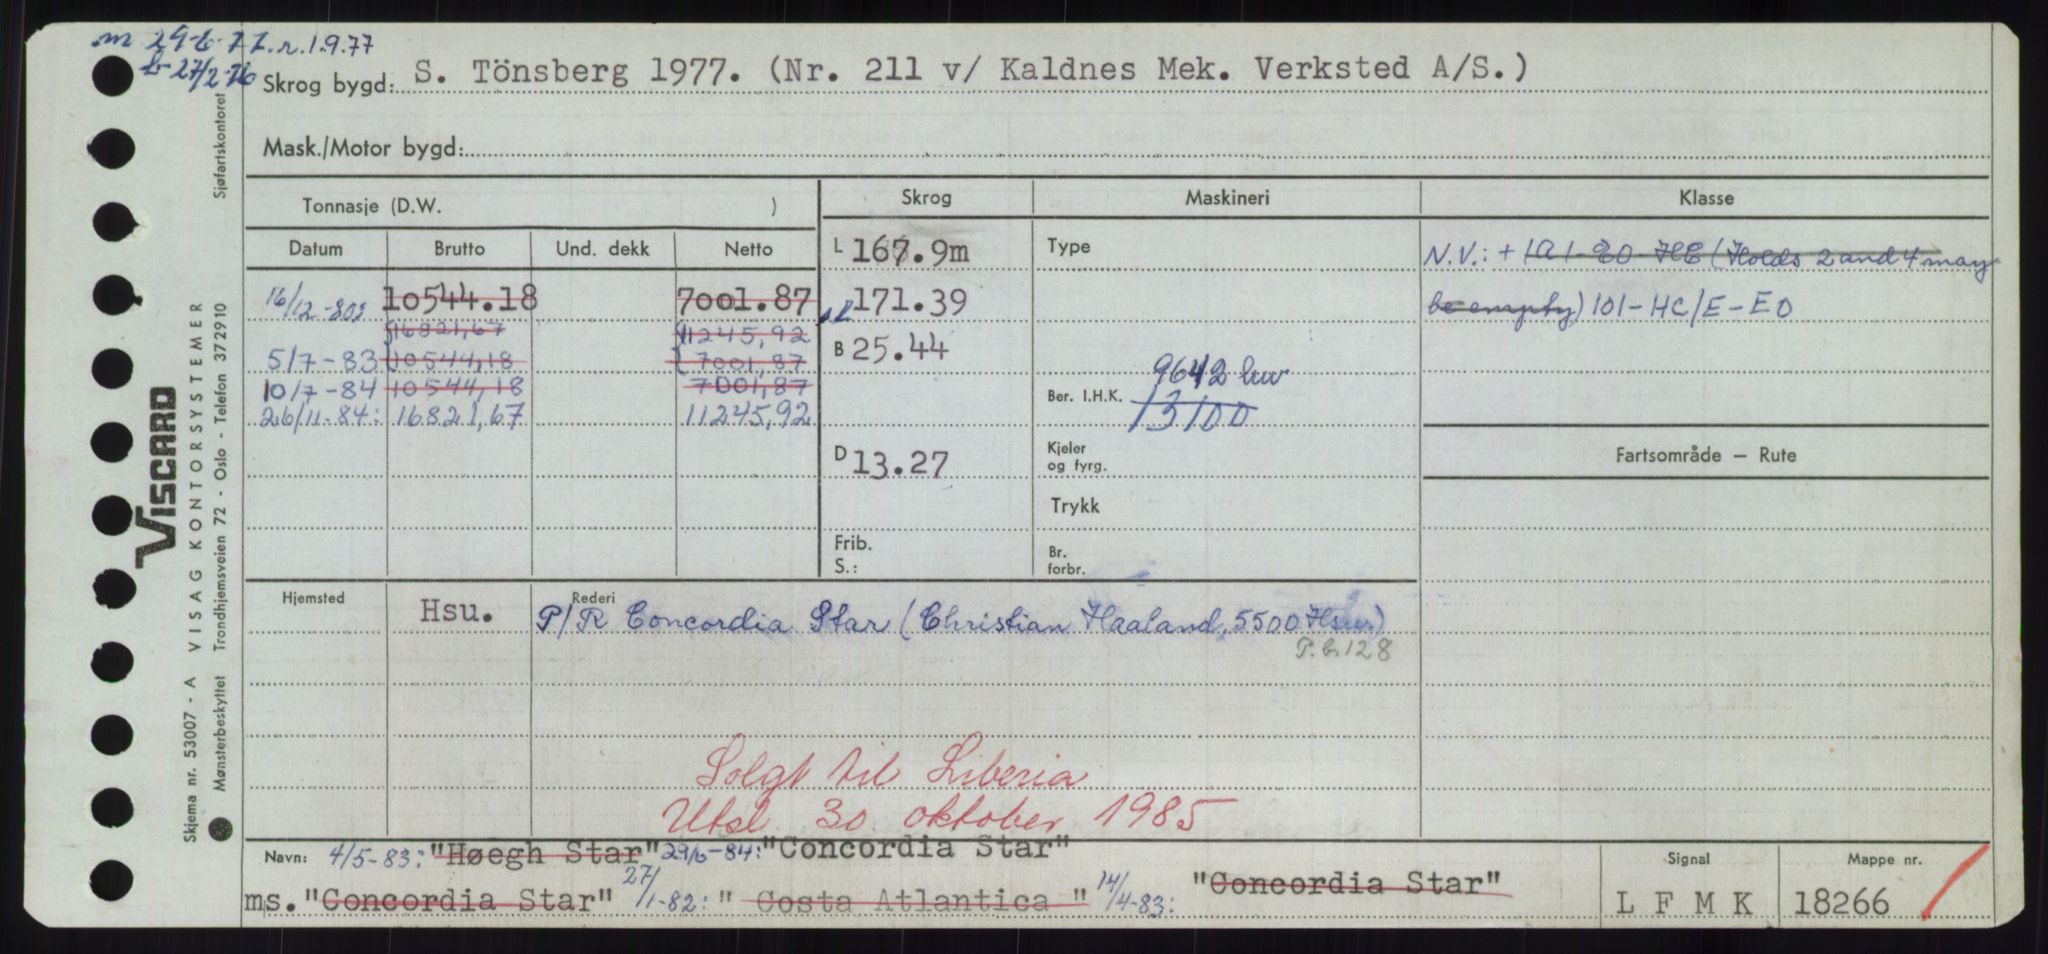 m 29-6-77. r. 1.9.77
b-27/2-76
Skrog bygd: S. Tönsberg 1977. (Nr. 211 v/ Kaldnes Mek. Verksted A/S.)
Mask./Motor bygd:
Tonnasje (D.W. )
Skrog Maskineri Klasse
Datum Brutto Und. dekk Netto
L 167.9m Type N.V.: + 1A1-EO-HC (Holds 2 and 4 may
16/12-80: 10544.18 7001.87 171.39 be empty) 101-HC/E-EO
{16821,67 {11245,92
5/7-83 {10544,18 {7001,87 B 25.44
10/7-84 10544,18 7001,87 9642 kw
26/11-84: 16821,67 11245,92 Ber. I.H.K. 13100
D 13.27 Kjeler og fyrg. Fartsområde — Rute
Trykk
Frib.
S.: Br. forbr.
Hjemsted Hsu. Rederi P/R Concordia Star (Christian Haaland, 5500 Hsu.)
P.b. 128
Solgt til Liberia
Utsl. 30. oktober 1985
Navn: 4/5-83: "Høegh Star" 29/6-84: "Concordia Star"
ms. "Concordia Star" 27/1-82: " Costa Atlantica " 14/4-83: "Concordia Star"
Signal L F M K
Mappe nr. 18266
VISCARD
Skjema nr. 53007 - A VISAG KONTORSYSTEMER
Mønsterbeskyttet Trondhjemsveien 72 - Oslo - Telefon 372910 Sjøfartskontoret